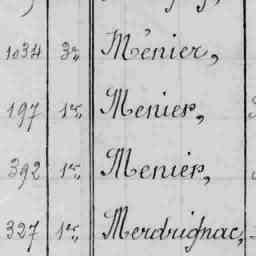 1034 3e, Ménier,
197 1er, Menier,
392 1er, Menier,
327 1er, Merdrignac,